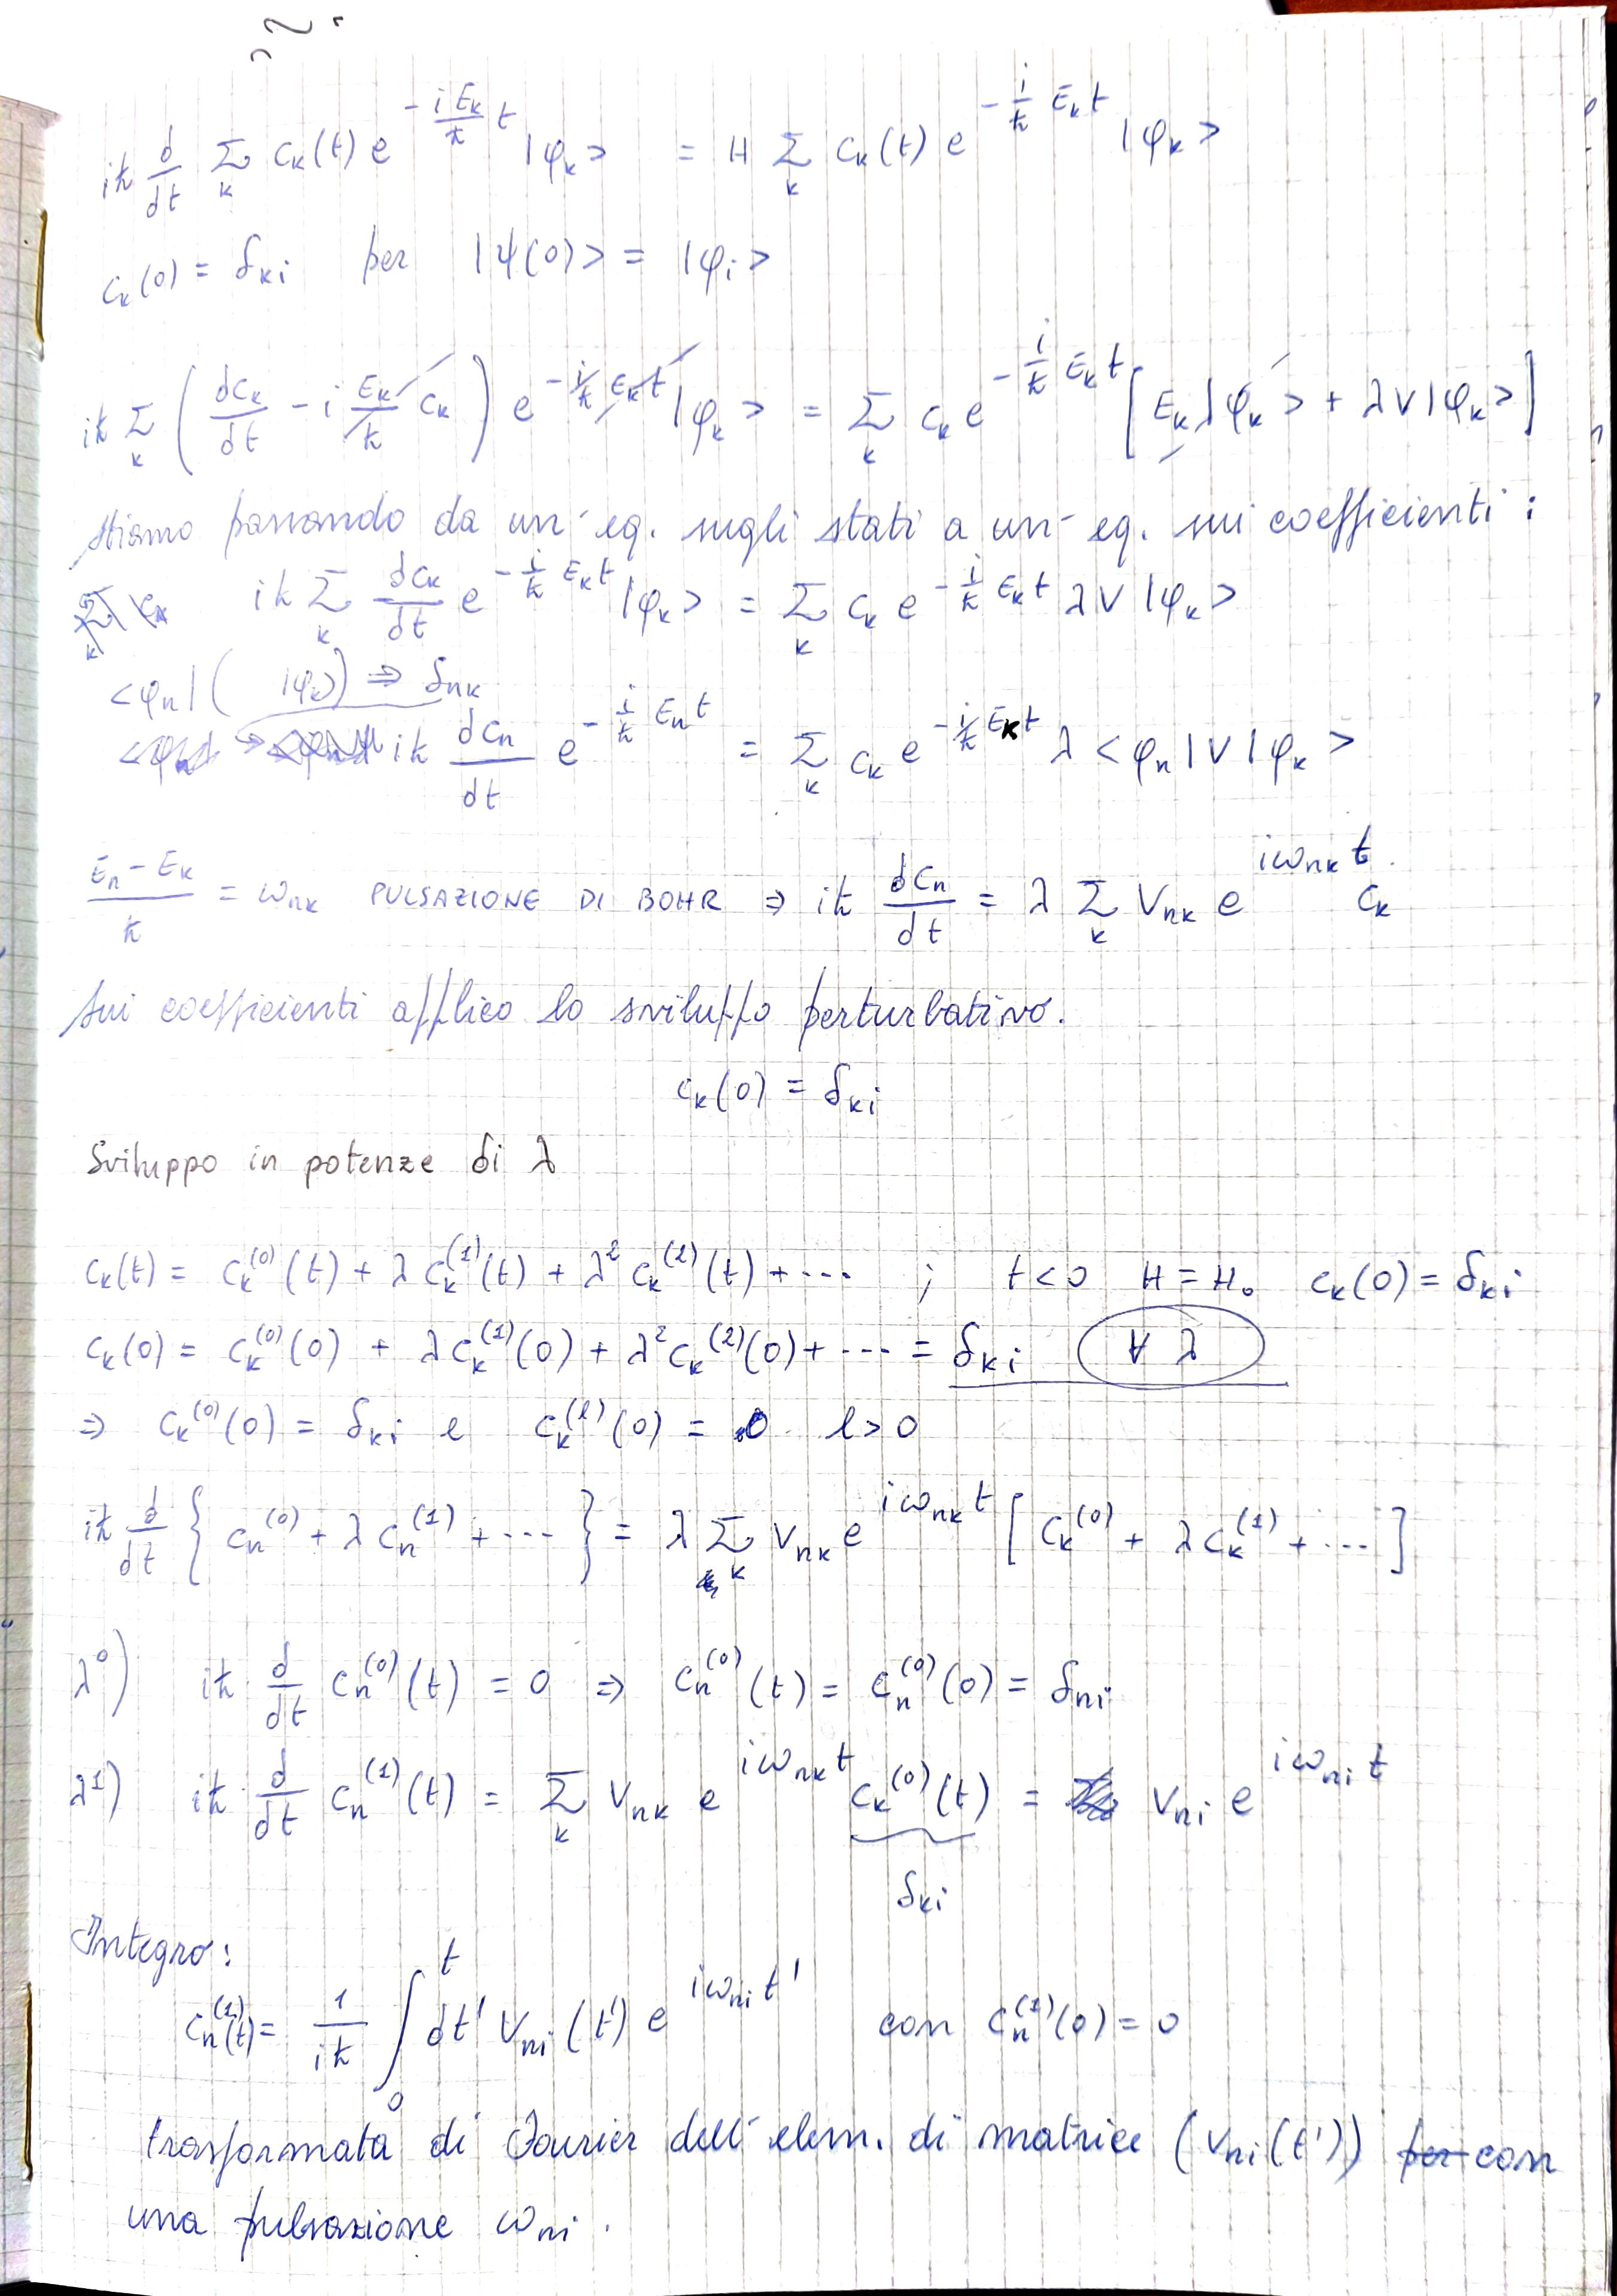 iħ d/dt Σ_k c_k(t) e^{-iE_k/ħ t} |φ_k> = H Σ_k c_k(t) e^{-i/ħ E_k t} |φ_k>
c_k(0) = δ_ki per |ψ(0)> = |φ_i>
iħ Σ_k ( dc_k/dt - i E_k/ħ c_k ) e^{-i/ħ E_k t} |φ_k> = Σ_k c_k e^{-i/ħ E_k t} [ E_k |φ_k> + λV|φ_k> ]
Stiamo passando da un'eq. sugli stati a un'eq. sui coefficienti:
iħ Σ_k dc_k/dt e^{-i/ħ E_k t} |φ_k> = Σ_k c_k e^{-i/ħ E_k t} λV |φ_k>
<φ_n| ( |φ_k>) ⇒ δ_nk
iħ dc_n/dt e^{-i/ħ E_n t} = Σ_k c_k e^{-i/ħ E_k t} λ <φ_n|V|φ_k>
(E_n - E_k)/ħ = ω_nk PULSAZIONE DI BOHR ⇒ iħ dc_n/dt = λ Σ_k V_nk e^{iω_nk t} c_k
Sui coefficienti applico lo sviluppo perturbativo.
c_k(0) = δ_ki
Sviluppo in potenze di λ
c_k(t) = c_k^(0)(t) + λ c_k^(1)(t) + λ² c_k^(2)(t) + ... ; t<0 H = H_0 c_k(0) = δ_ki
c_k(0) = c_k^(0)(0) + λ c_k^(1)(0) + λ² c_k^(2)(0) + ... = δ_ki ∀ λ
⇒ c_k^(0)(0) = δ_ki e c_k^(l)(0) = 0 l>0
iħ d/dt { c_n^(0) + λ c_n^(1) + ... } = λ Σ_k V_nk e^{iω_nk t} [ c_k^(0) + λ c_k^(1) + ... ]
λ⁰) iħ d/dt c_n^(0)(t) = 0 ⇒ c_n^(0)(t) = c_n^(0)(0) = δ_ni
λ¹) iħ d/dt c_n^(1)(t) = Σ_k V_nk e^{iω_nk t} c_k^(0)(t) = V_ni e^{iω_ni t}
δ_ki
Integro:
c_n^(1)(t) = 1/iħ ∫_0^t dt' V_ni(t') e^{iω_ni t'} con c_n^(1)(0) = 0
trasformata di Fourier dell'elem. di matrice (V_ni(t')) per con
una pulsazione ω_ni.